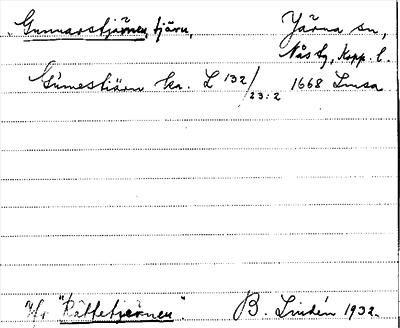 Gunnarstjärnen, tjärn, Järna sn,
Nås tg, Kopp. l.
Gunnestiärn ka. L 132/23:2 1668 Lmsa
"Råttetjärnen". B. Lindén 1932.